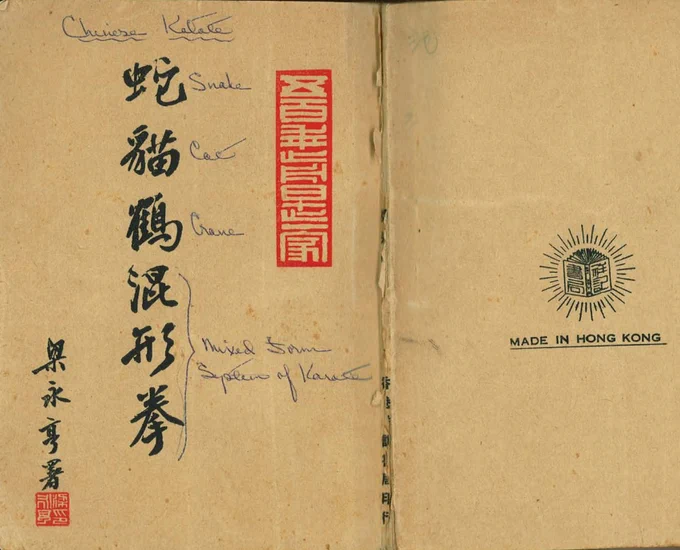 Chinese Karate
蛇貓鶴混形拳
Snake
Cat
Crane
Mixed Form
System of Karate
梁永亨署
祥記
書局
MADE IN HONG KONG